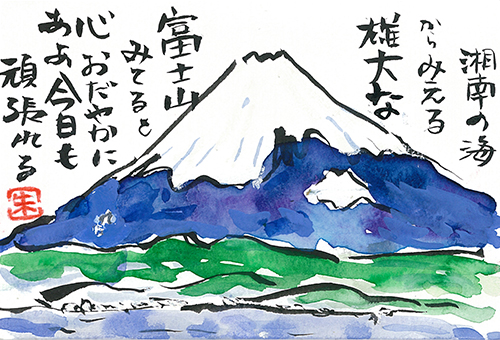 湘南の海
からみえる
雄大な
富士山
みてると
心おだやかに
あゝ今日も
頑張れる